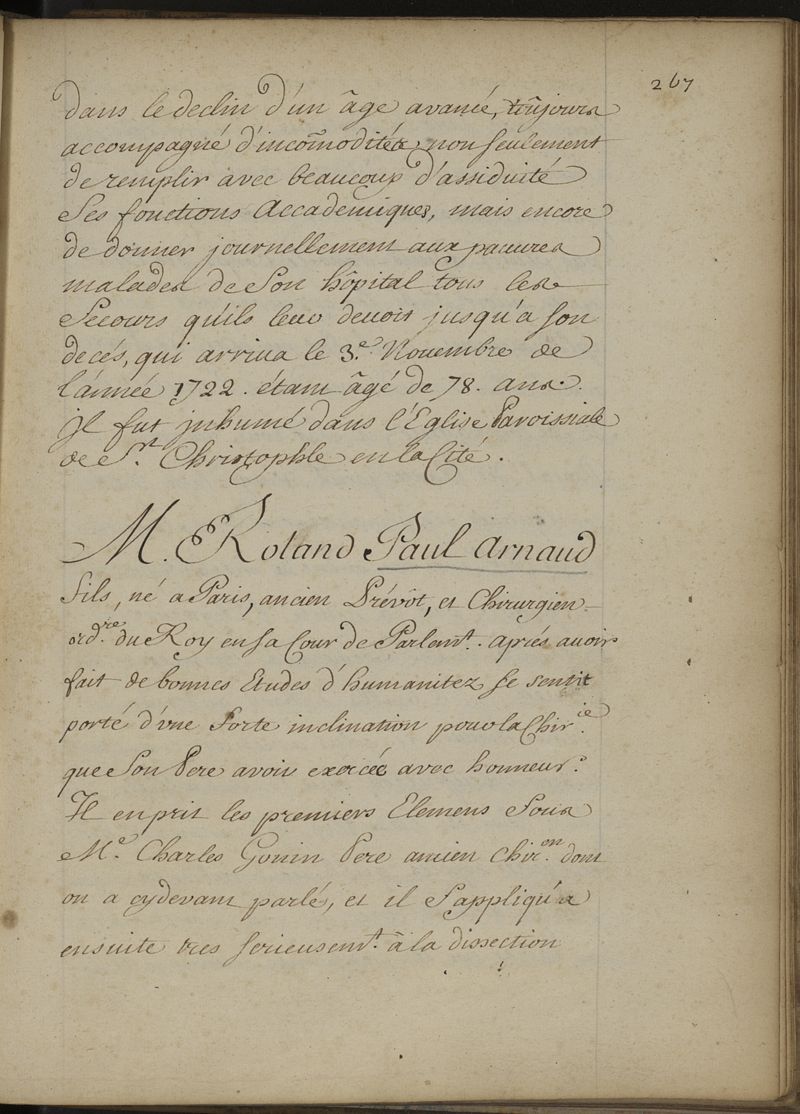 267
dans le declin d'un âge avancé, toûjours
accompagné d'incom̃oditéz, non seulement
de remplir avec beaucoup d'assiduité
Ses fonctions Accademiques, mais encore
de donner journellement aux pauures
malades de Son hôpital tous les
Secours qu'ils leur deuoit jusqu'a son
decés, qui arriua le 3.e Nouembre de
l'année 1722. étant âgé de 78. ans.
Jl fut jnhumé dans l'Eglise Paroissiale
de St. Christophle en la Cité.
M. Roland Paul Arnaud
fils, né a Paris, ancien Prévôt, et Chirurgien
ord.re du Roy en sa Cour de Parlemt. aprés auoir
fait de bonnes Etudes d'humanitez se sentit
porté d'vne forte inclination pour la Chir.ie
que Son Pere avoit exercée avec honneur.
Il en prit les premiers Elemens Sous
M.e Charles Gonin Pere ancien Chir.on dont
on a cydevant parlé, et il S'appliqu'a
ensuite tres serieusemt. à la dissection